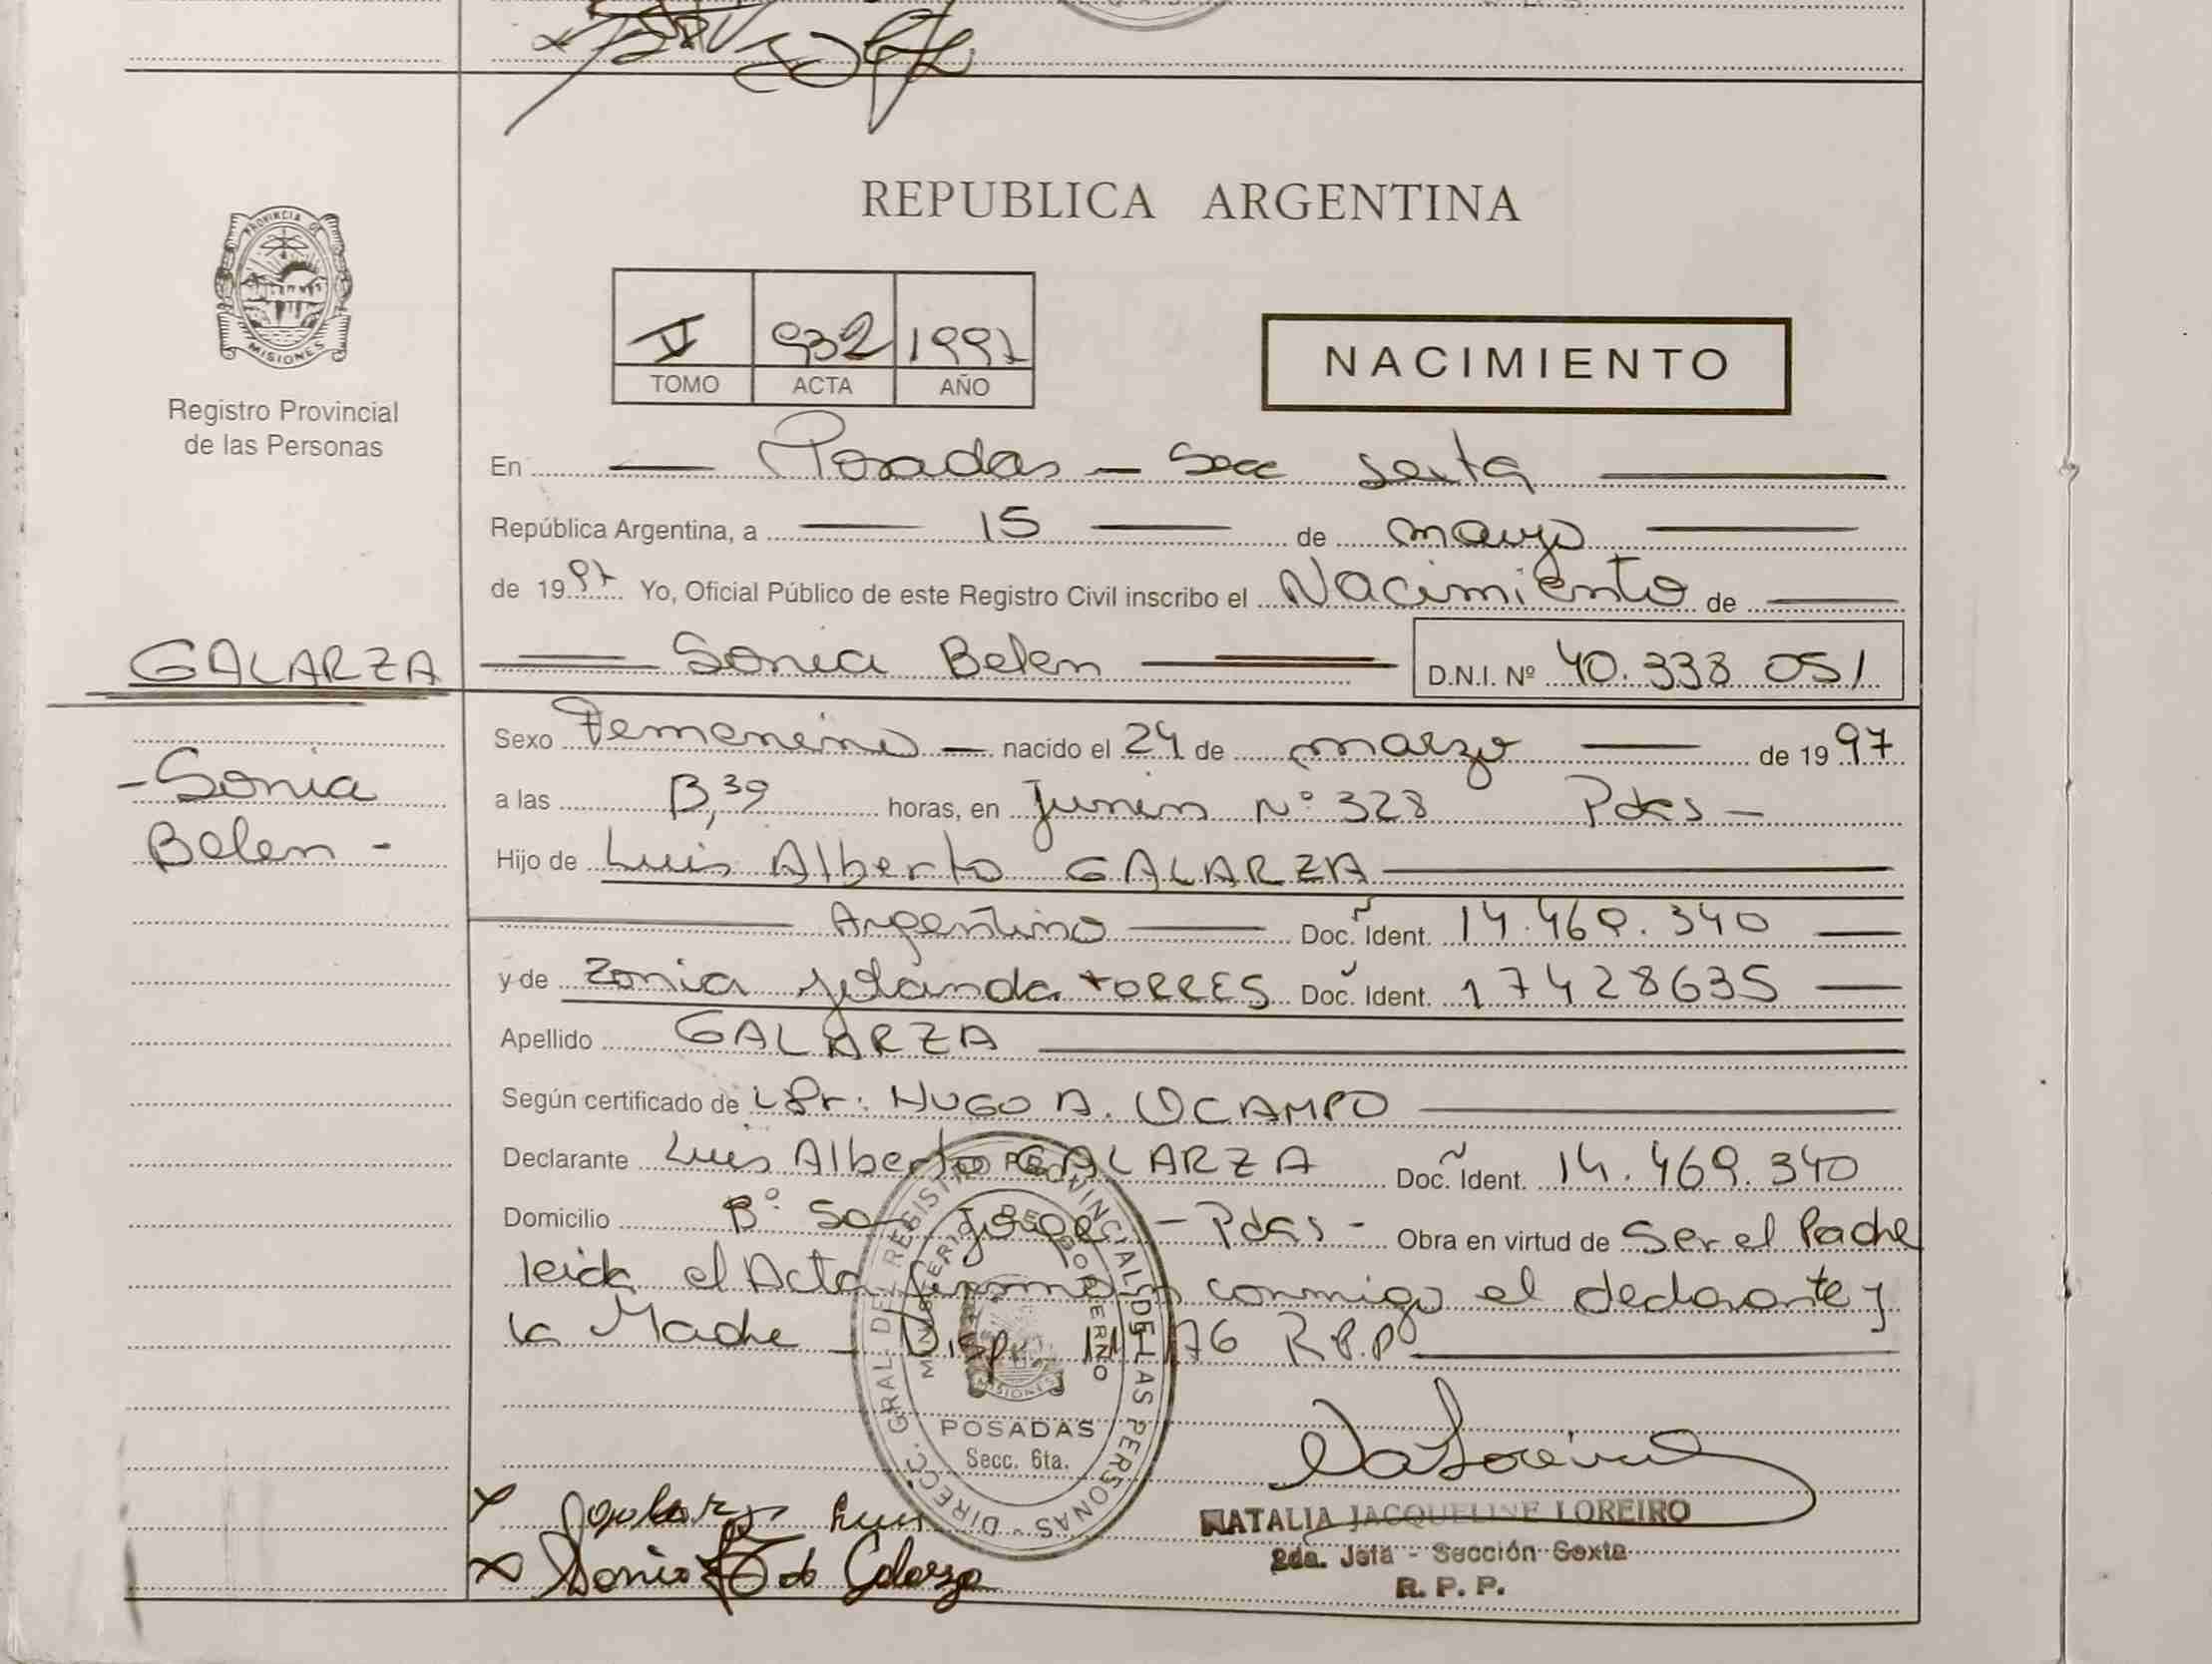 REPUBLICA ARGENTINA
PROVINCIA DE MISIONES
Registro Provincial
de las Personas
II 932 1997
TOMO ACTA AÑO
NACIMIENTO
En Posadas - Secc Sexta
República Argentina, a 15 de mayo
de 1997 Yo, Oficial Público de este Registro Civil inscribo el Nacimiento de
GALARZA
Sonia Belen D.N.I. Nº 40.338 051
Sexo Femenino - nacido el 24 de marzo de 1997
- Sonia
Belen -
a las horas, en Junin Nº 328 Pdas -
Hijo de Luis Alberto GALARZA
Argentino Doc. Ident. 14.469.340
y de Zonia Yolanda TORRES Doc. Ident. 17428635
Apellido GALARZA
Según certificado de Dr: HUGO A. OCAMPO
Declarante Luis Alberto GALARZA Doc. Ident. 14.469.340
Domicilio Bº San Jorge - Pdas - Obra en virtud de Ser el Padre
leida el Acta firman conmigo el declarante y
la Madre - Disp. 76 R.P.P
DIRECC. GRAL DEL REGISTRO PROVINCIAL DE LAS PERSONAS
MINISTERIO DE GOBIERNO
MISIONES
POSADAS
Secc. 6ta.
Luis
Sonia de Galarza
NATALIA JACQUELINE LOREIRO
2da. Jefa - Sección Sexta
R. P. P.